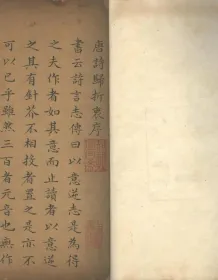 唐詩歸折衷序
書云詩言志傳曰以意逆志是為得
之夫作者如其意而止讀者以意逆
之其有針芥不相投者置之是亦不
可以已乎雖然三百者元音也無作